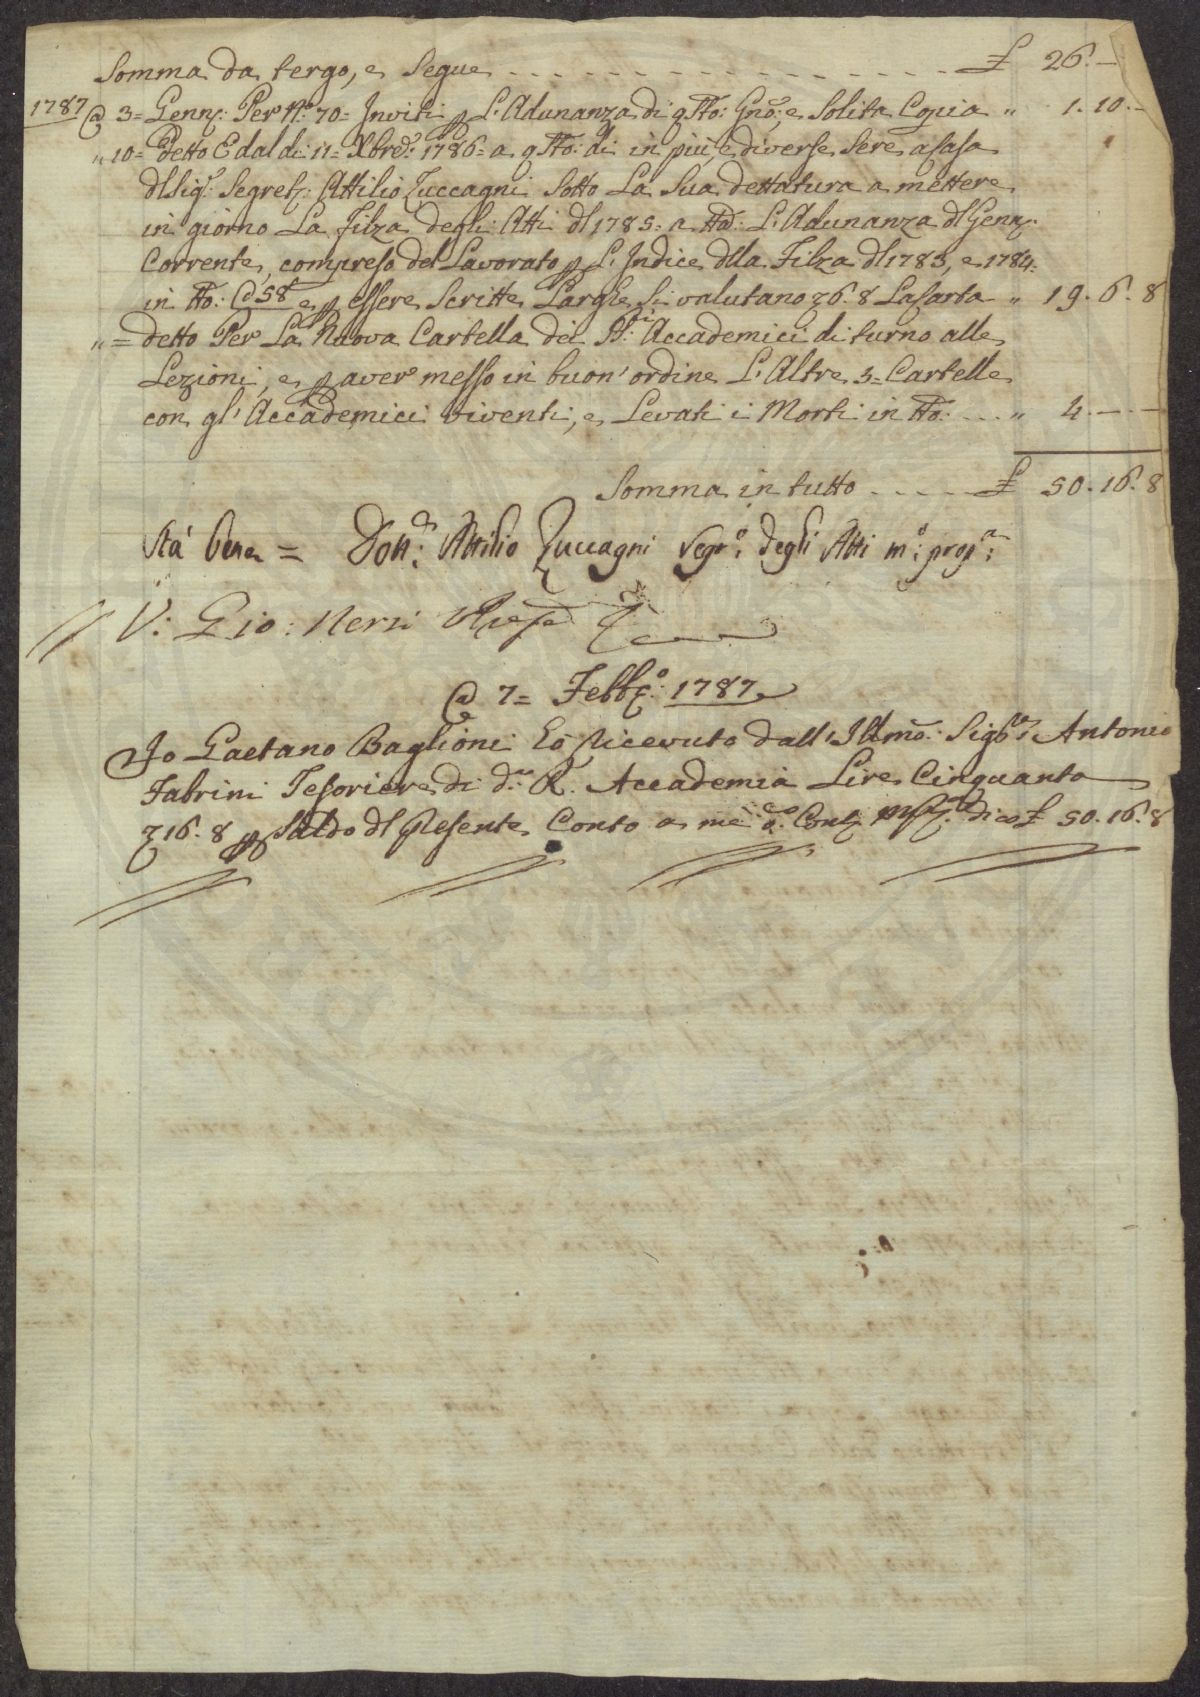 Somma da tergo, e Segue . . . . . . . . . . £ 26. —
1787 @ 3= Genn: Per N.° 70= Inviti p L'Adunanza di q.sto: Gno:, e Solita Copia " 1. 10. —
" 10= detto E dal dì 11= Xbre: 1786= a q.sto: dì in più, e diverse Sere a Casa
dl Sig.r Segret: Attilio Zuccagni Sotto La Sua dettatura a mettere
in giorno La Filza degli Atti dl 1785= a tta: L'Adunanza dl Genn:
Corrente, compreso del Lavorato p L'Indice dlla Filza dl 1783, e 1784=
in tto: C. 58 e p essere Scritte Larghe si valutano 6. 8 La Carta " 19. 6. 8
" = detto Per La Nuova Cartella dei SS.ri Accademici di turno alle
Lezioni, e p aver messo in buon' ordine L'Altre 3= Cartelle
con gl' Accademici viventi, e Levati i Morti in tto: . . . . " 4. — . —
Somma in tutto . . . . . £ 50. 16. 8
Stà bene = Dott.r: Attilio Zuccagni Segr.o: degli Atti m.o: prop.a:
V: Gio: Neri
@ 7= Febb.o: 1787
Io Gaetano Baglioni hò Ricevuto dall' Illmo: Sig.re: Antonio
Fabrini Tesoriere di d.a R. Accademia Lire Cinquanta
16. 8 p Saldo dl Presente Conto a me d.o Cont. dico £ 50. 16. 8